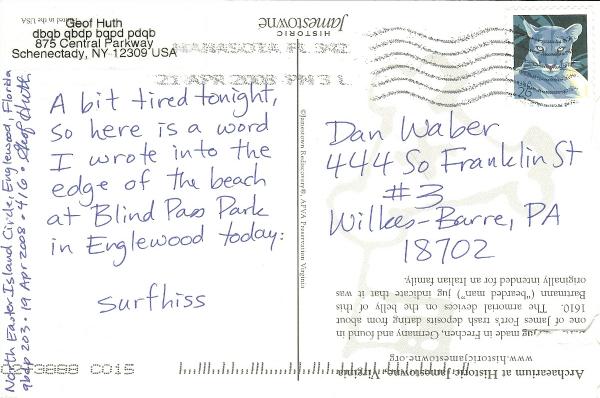 Geof Huth
dbqb qbdp bqpd pdqb
875 Central Parkway
Schenectady, NY 12309 USA
in the USA
HISTORIC
Jamestowne
MANASOTA FL 342
21 APR 2008 PM 3 L
26
A bit tired tonight,
so here is a word
I wrote into the
edge of the beach
at Blind Pass Park
in Englewood today:
surfhiss
North Easter Island Circle, Englewood, Florida
qbdp 203 · 19 Apr 2008 · 416 · Geof Huth
©Jamestown Rediscovery®, APVA Preservation Virginia
Dan Waber
444 So Franklin St
#3
Wilkes-Barre, PA
18702
Archaearium at Historic Jamestowne, Virginia
www.historicjamestowne.org
jug made in Frechen, Germany and found in
one of James Fort's trash deposits dating from about
1610. The armorial devices on the belly of this
Bartmann ("bearded man") jug indicate that it was
originally intended for an Italian family.
3888 C015